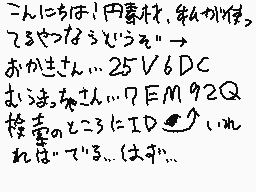 こんにちは!円素材、私が使っ
てるやつならどうぞ→
おかきさん…25V6DC
むらまっちゃさん…7EM92Q
検索のところにID いれ
ればでる…はず…